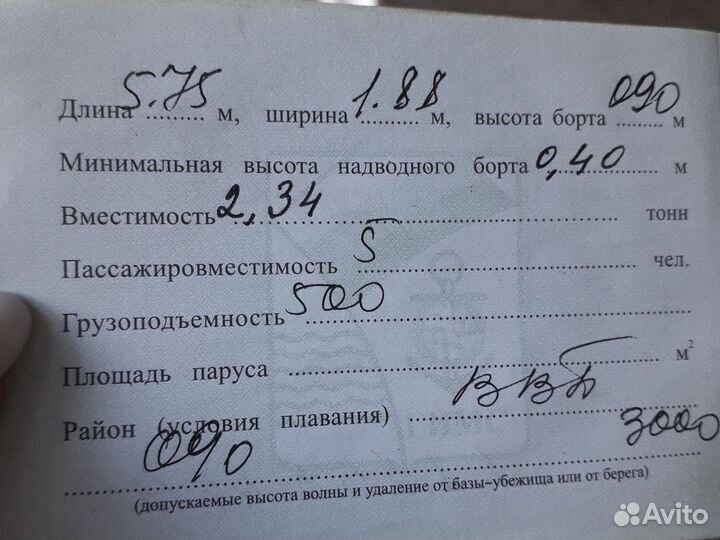 Длина 5.75 м, ширина 1.88 м, высота борта 090 м
Минимальная высота надводного борта 0,40 м
Вместимость 2,34 тонн
Пассажировместимость 5 чел.
Грузоподъемность 500
Площадь паруса м²
Район (условия плавания) ВВП
090 3000
(допускаемые высота волны и удаление от базы-убежища или от берега)
ГИМС
Avito